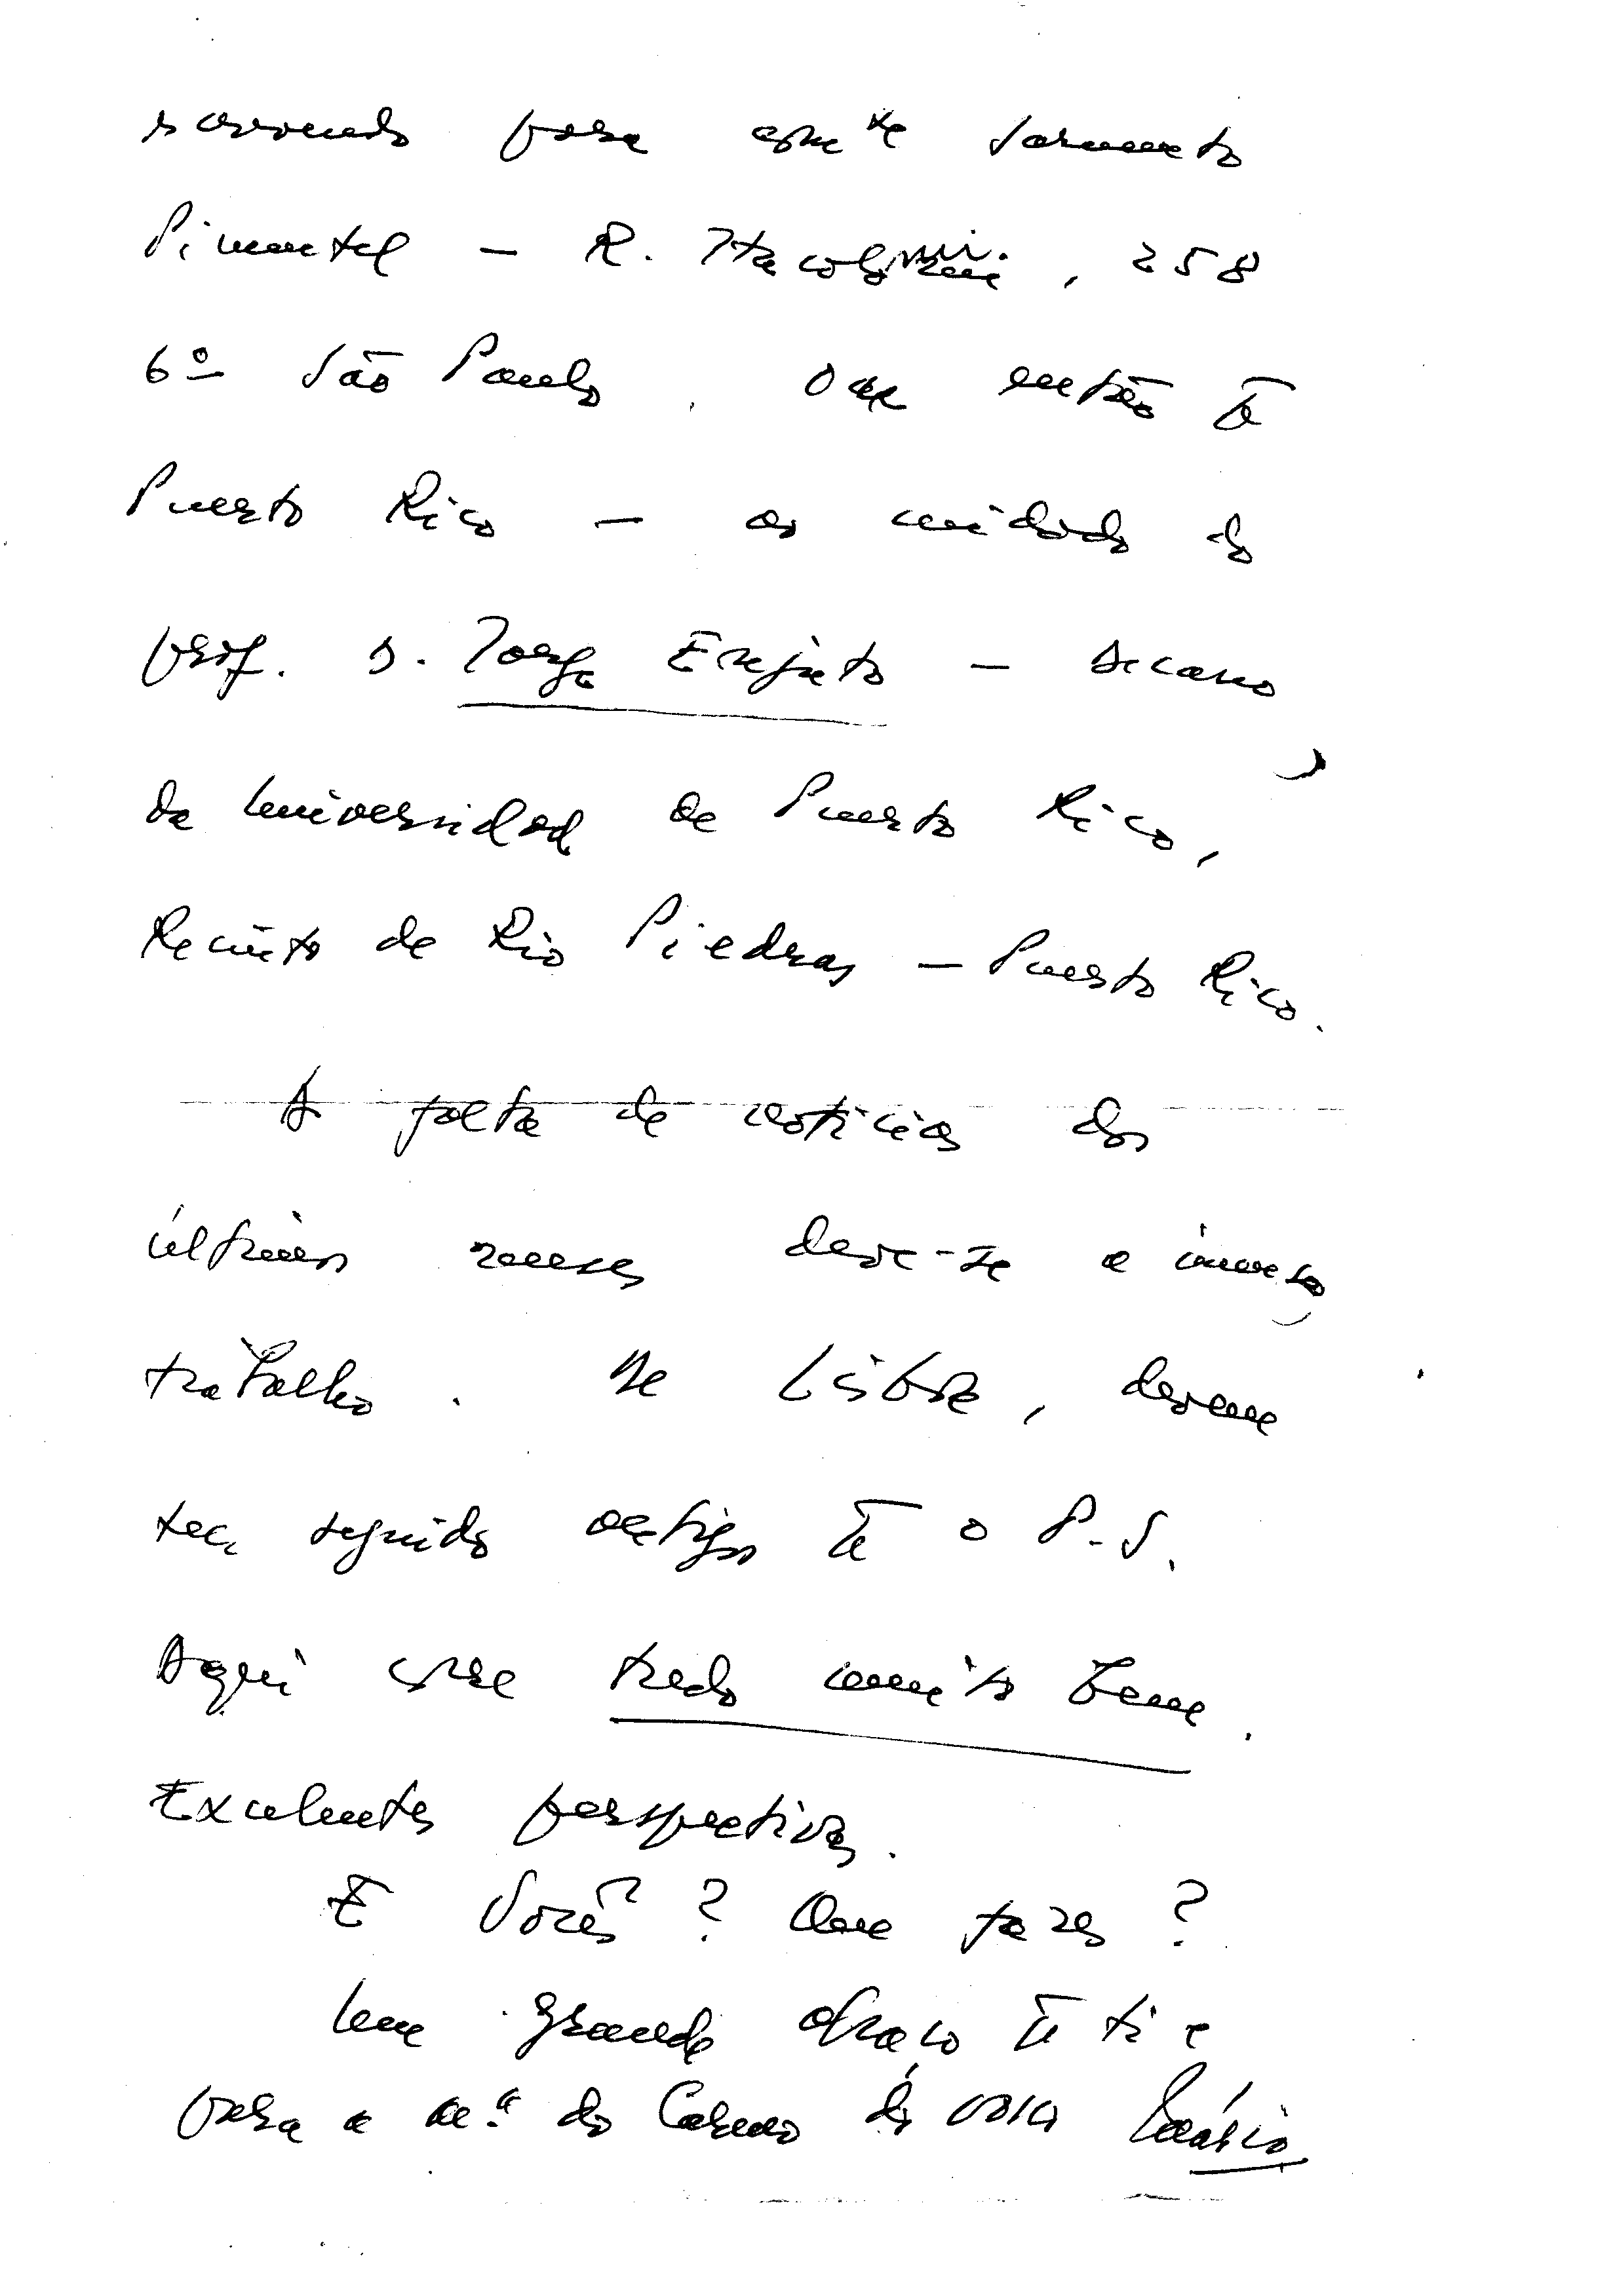 escrevendo para com.te Sarmento
Pimentel — R. Itacolomi, 258
6º São Paulo. Ou então p.ª
Puerto Rico — ao cuidado do
prof. D. Jorge Enjuto — Decano
da Universidad de Puerto Rico,
Recinto de Rio Piedras — Puerto Rico.
A falta de notícias dos
últimos meses deve-se a imenso
trabalho. De Lisboa, devem
ter seguido artigos p.ª o P.S.
Aqui corre tudo muito bem.
Excelentes perspectivas.
E Vocês? Que fazes?
Um grande abraço p.ª ti e
para a M.ª do Carmo do vosso Mário